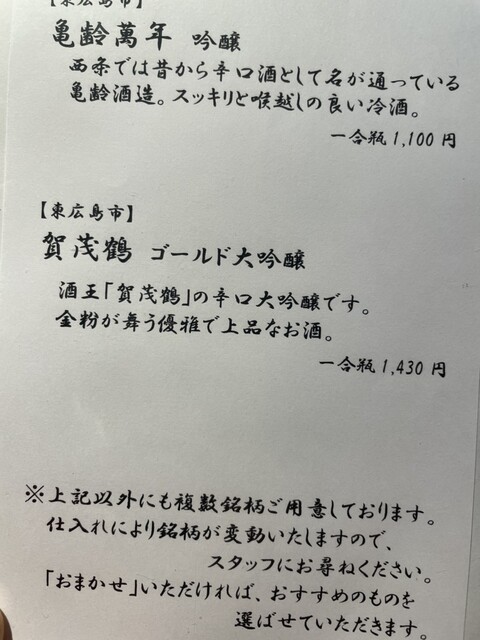 【東広島市】
亀齢萬年 吟醸
西条では昔から辛口酒として名が通っている
亀齢酒造。スッキリと喉越しの良い冷酒。
一合瓶1,100円
【東広島市】
賀茂鶴 ゴールド大吟醸
酒王「賀茂鶴」の辛口大吟醸です。
金粉が舞う優雅で上品なお酒。
一合瓶1,430円
※上記以外にも複数銘柄ご用意しております。
仕入れにより銘柄が変動いたしますので、
スタッフにお尋ねください。
「おまかせ」いただければ、おすすめのものを
選ばせていただきます。